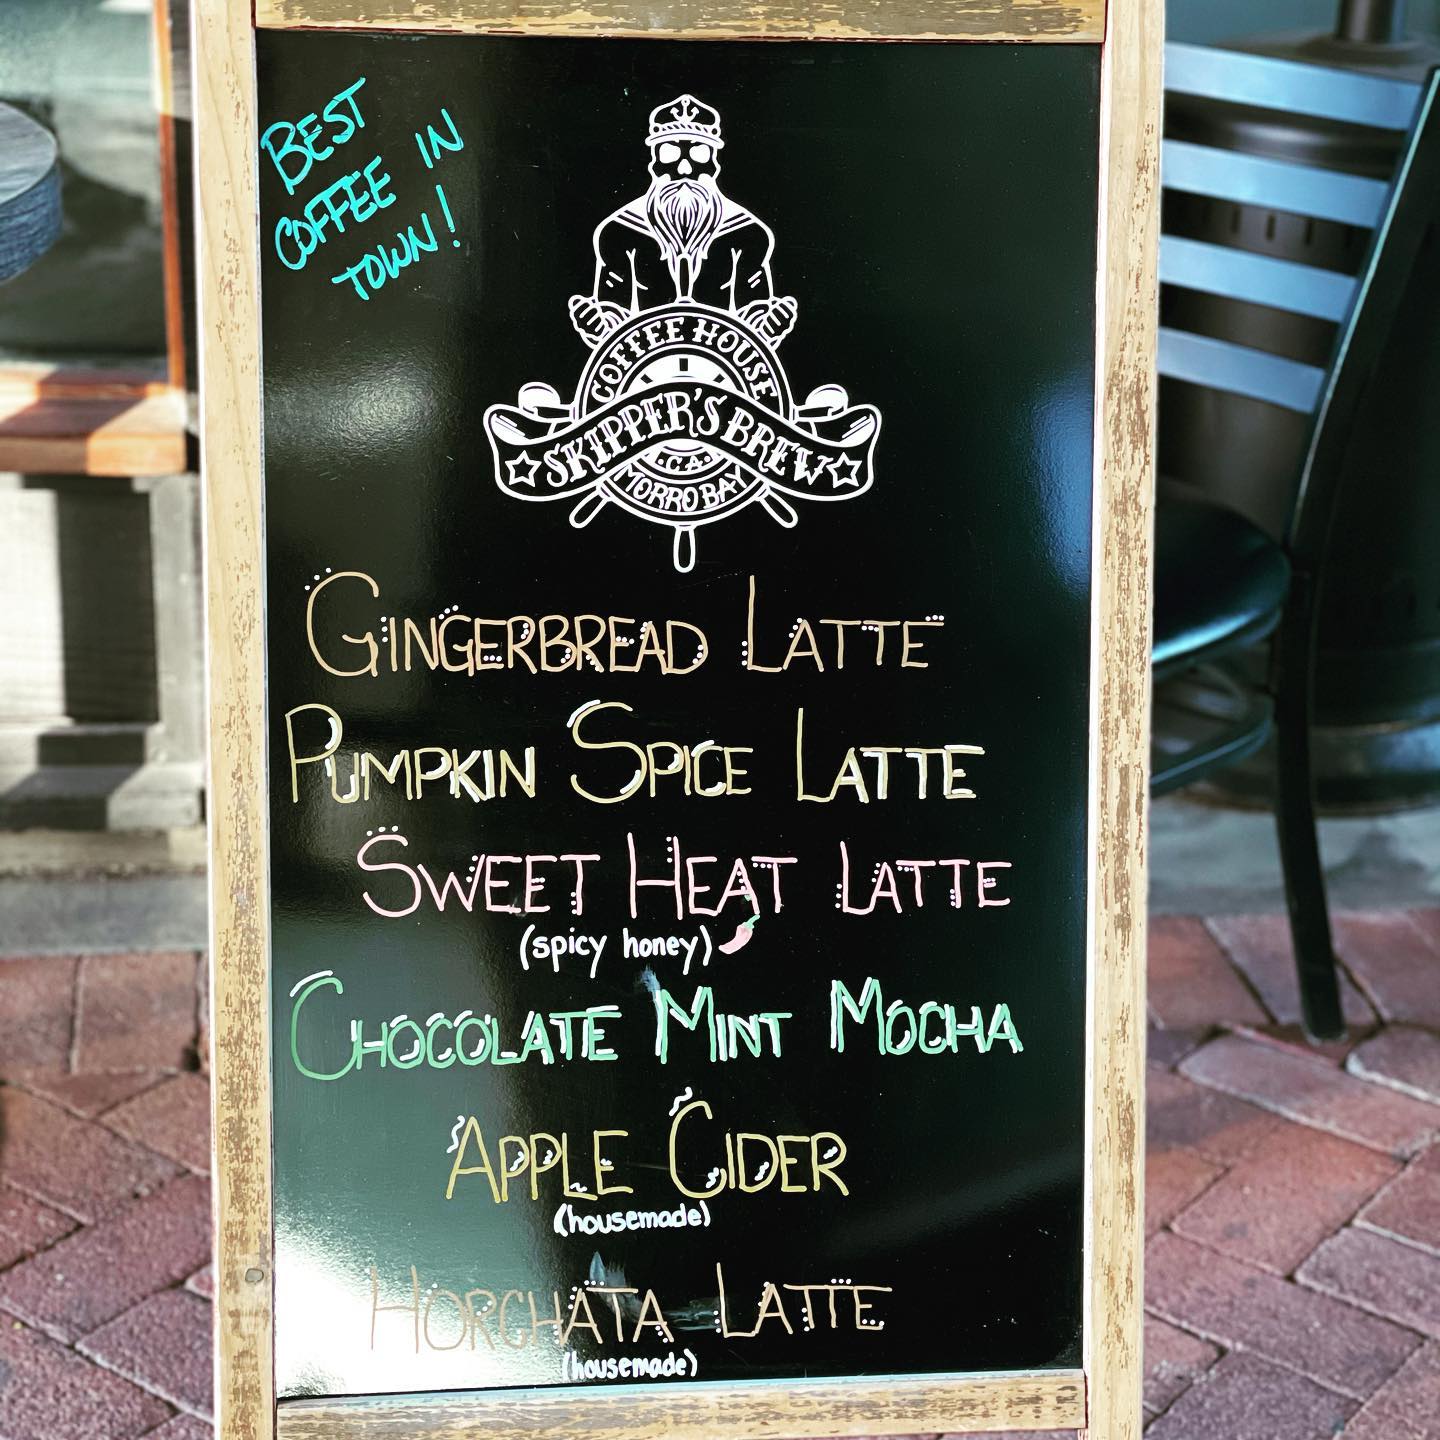 BEST
COFFEE IN
TOWN!
COFFEE HOUSE
SKIPPER'S BREW
.C.A.
MORRO BAY
GINGERBREAD LATTE
PUMPKIN SPICE LATTE
SWEET HEAT LATTE
(spicy honey)
CHOCOLATE MINT MOCHA
APPLE CIDER
(housemade)
HORCHATA LATTE
(housemade)